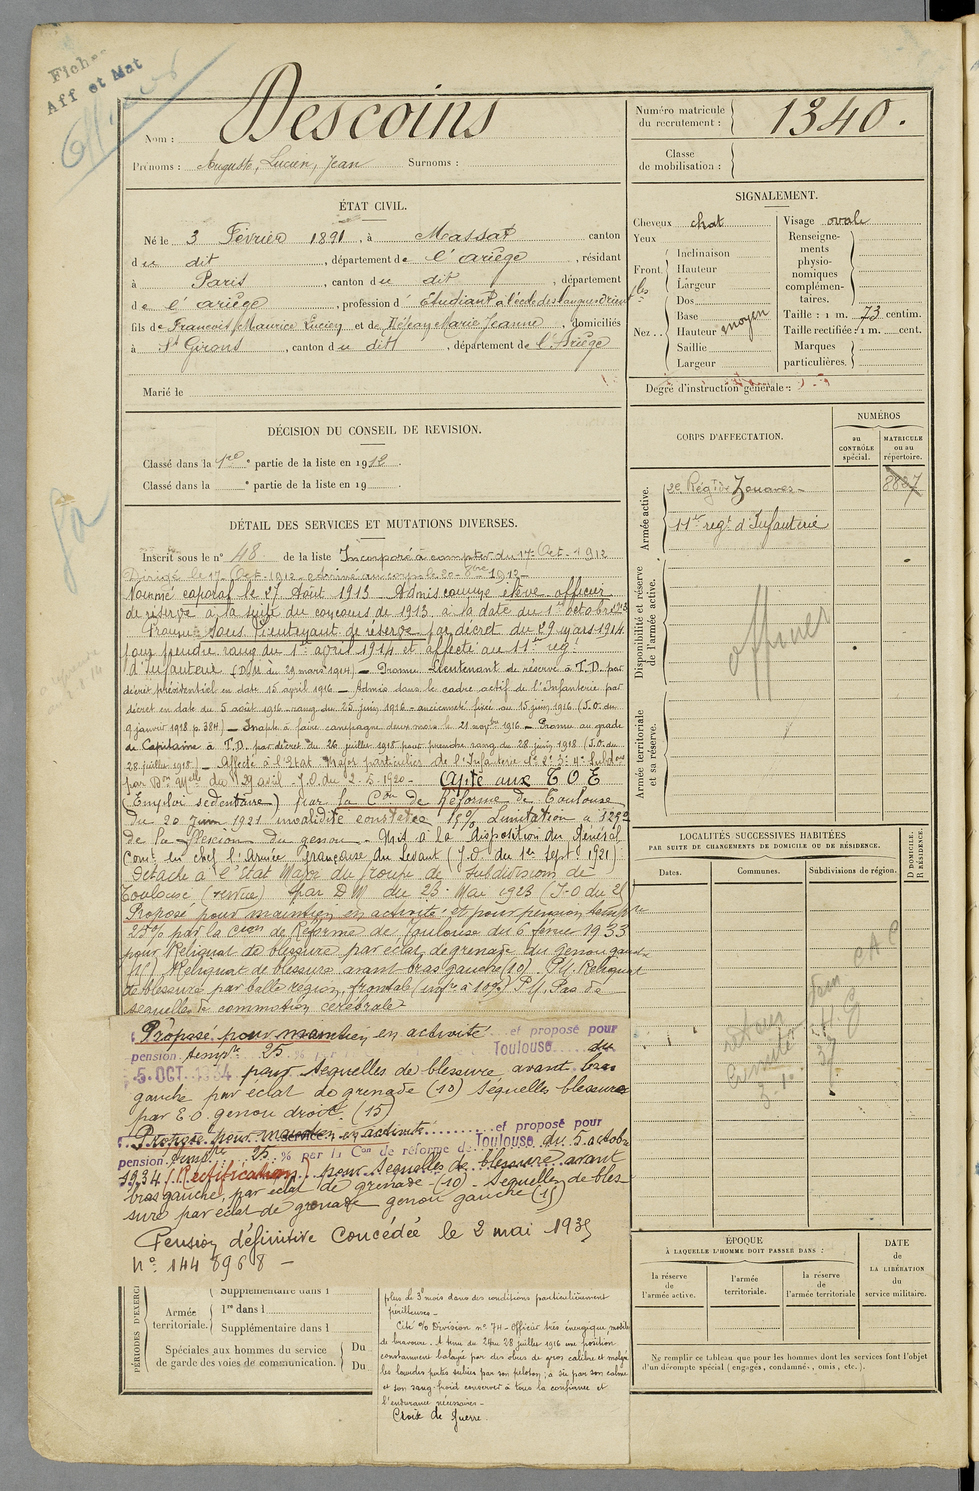 Fiche
Aff et Mat
Officier
Nom : Descoins
Prénoms : Auguste, Lucien, Jean Surnoms :
Numéro matricule du recrutement : 1340.
Classe de mobilisation :
ÉTAT CIVIL.
Né le 3 Février 1891, à Massat canton
du dit, département de l'ariège, résidant
à Paris, canton du dit, département
de l'ariège, profession d'Etudiant à l'école des langues Orient
fils de François Maurice Lucien et de Déjean Marie Jeanne, domiciliés
à St Girons, canton du dit, département de l'Ariège
Marié le
SIGNALEMENT.
Cheveux chat
Yeux
Front. Inclinaison
Hauteur
Largeur
Nez. Dos
Base
Hauteur moyen
Saillie
Largeur
Visage ovale
Renseigne-
ments
physio-
nomiques
complémen-
taires.
Taille : 1 m. 73 centim.
Taille rectifiée : 1 m. cent.
Marques
particulières.
Degré d'instruction générale :
DÉCISION DU CONSEIL DE REVISION.
Classé dans la 1re partie de la liste en 1912.
Classé dans la partie de la liste en 19
CORPS D'AFFECTATION.
NUMÉROS
au CONTRÔLE spécial.
MATRICULE ou au répertoire.
Armée active.
2e Régt de Zouaves 8827
11e regt d'Infanterie
Disponibilité et réserve de l'armée active.
officier
Armée territoriale et sa réserve.
DÉTAIL DES SERVICES ET MUTATIONS DIVERSES.
Inscrit sous le n° 48 de la liste Incorporé à compter du 17 Oct. 1912
Dirigé le 17 Oct. 1912 arrivé au corps le 20 1912
Nommé caporal le 27 Août 1913 Admis comme élève officier
de réserve à la suite du concours de 1913 à la date du 1er octobre
Promu Sous lieutenant de réserve par décret du 29 mars 1914
pour prendre rang du 1er avril 1914 et affecté au 11e reg
d'infanterie (D M du 29 mars 1914) — Promu Lieutenant de réserve à T.D. par
décret présidentiel en date 15 avril 1916 — Admis dans le cadre actif de l'Infanterie par
décret en date du 5 août 1916 - rang du 25 juin 1916 - ancienneté fixée au 15 juin 1916 (J.O. du
9 janvier 1918 p. 384) — Inapte à faire campagne deux mois le 21 novbre 1916 — Promu au grade
de Capitaine à T.D. par décret du 26 juillet 1918 pour prendre rang du 28 juin 1918 (J.O. du
28 juillet 1918) — Affecté à l'Etat Major particulier de l'Infanterie
du 29 avril - J.O. du 2.5.1920 - Apte aux T O E
(Emploi sedentaire) par la Con de Réforme de Toulouse
du 20 Juin 1921 invalidité constatée 15% Limitation à
de la flexion du genou - Mis à la disposition du Général
Comt en chef l'Armée Française du Levant (J.O. du 1er Sept. 1921)
Détaché à l'Etat Major du Groupe de Subdivisions de
Toulouse (service) par D M du 23 Mai 1923 (J.O du
Proposé pour maintien en activité et pour pension tempre
25% par la Cion de Réforme de Toulouse du 6 février 1933
pour Reliquat de blessure par éclat de grenade du genou gauche
Reliquat de blessure avant bras gauche (10). P.M. Reliquat
de blessure par balle région frontale (infre à 10%) P.M. Pas de
sequelles de commotion cérébrale
Proposé pour maintien en activité et proposé pour
pension tempre 25 % par Toulouse du
5. OCT. 1934 pour séquelles de blessure avant bras
gauche par éclat de grenade (10) séquelles blessure
par E.O. genou droit. (15)
Proposé pour maintien en activité et proposé pour
pension tempre 25 % par la Con de réforme de Toulouse du 5 octobre
1934 (Rectification) pour séquelles de blessure avant
bras gauche, par éclat de grenade (10) - séquelles de bles-
sure par éclat de grenade genou gauche (15)
Pension définitive concédée le 2 mai 1935
N° 1448968 —
LOCALITÉS SUCCESSIVES HABITÉES
PAR SUITE DE CHANGEMENTS DE DOMICILE OU DE RÉSIDENCE.
Dates.
Communes.
Subdivisions de région.
D DOMICILE.
R RÉSIDENCE.
ÉPOQUE
À LAQUELLE L'HOMME DOIT PASSER DANS :
la réserve de l'armée active.
l'armée territoriale.
la réserve de l'armée territoriale
DATE de LA LIBÉRATION du service militaire.
Ne remplir ce tableau que pour les hommes dont les services font l'objet
d'un décompte spécial (engagés, condamnés, omis, etc.).
PÉRIODES D'EXERCI
Armée territoriale.
Supplémentaire dans l
1re dans l
Supplémentaire dans l
Spéciales aux hommes du service
de garde des voies de communication.
Du
Du
plus de 3 mois dans des conditions particulièrement
périlleuses -
Cité % Division n° 74 - Officier très énergique
de bravoure. A tenu du 24 au 28 juillet 1916 une position
constamment balayée par des obus de gros calibre et malgré
les lourdes pertes subies par son peloton, a su par son calme
et son sang-froid conserver à tous la confiance et
l'endurance nécessaires -
Croix de Guerre.